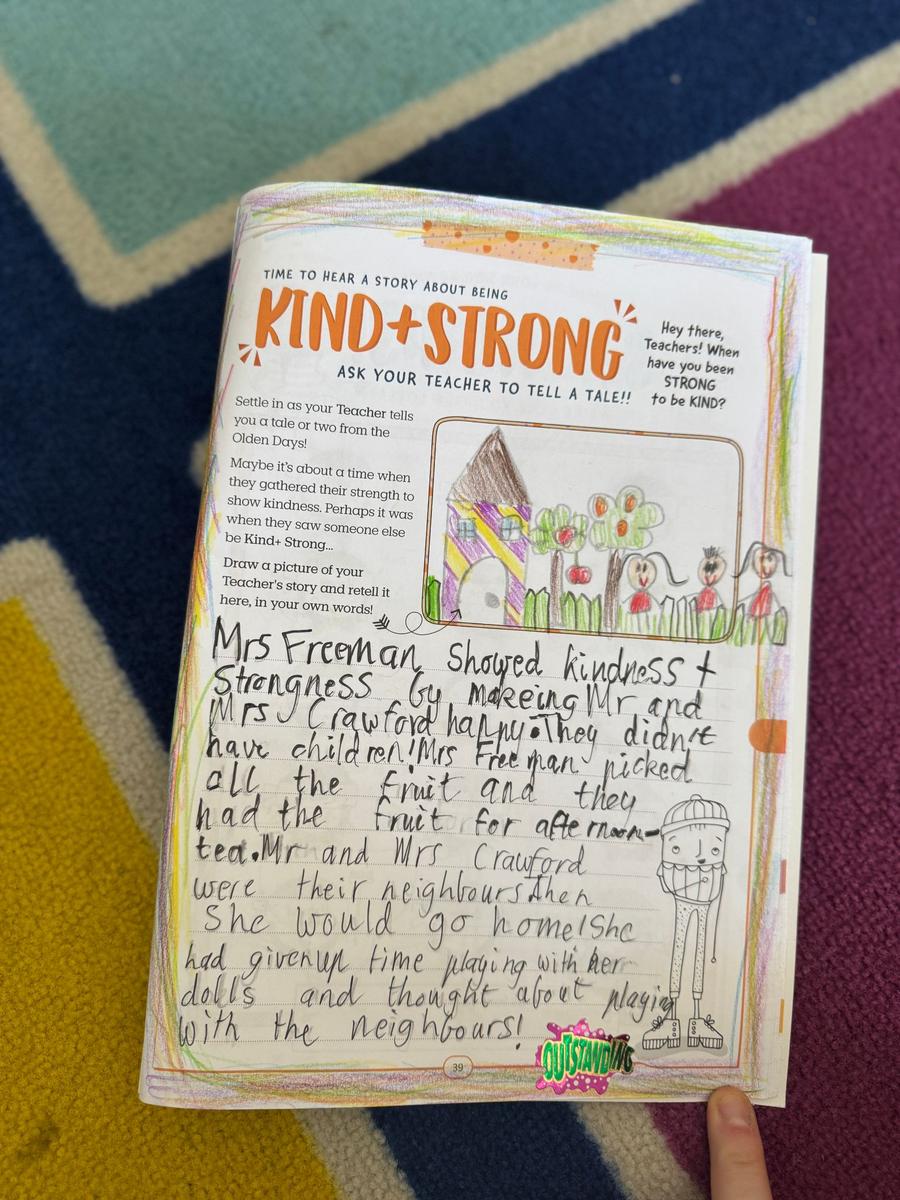 TIME TO HEAR A STORY ABOUT BEING
KIND+STRONG
ASK YOUR TEACHER TO TELL A TALE!!
Hey there,
Teachers! When
have you been
STRONG
to be KIND?
Settle in as your Teacher tells
you a tale or two from the
Olden Days!
Maybe it's about a time when
they gathered their strength to
show kindness. Perhaps it was
when they saw someone else
be Kind+ Strong...
Draw a picture of your
Teacher's story and retell it
here, in your own words!
Mrs Freeman Showed kindness +
Strongness by makeing Mr and
Mrs Crawford happy. They didn't
have children! Mrs Freeman picked
all the fruit and they
had the fruit for afternoon-
tea. Mr and Mrs Crawford
were their neighbours. Then
She would go home! She
had given up time playing with her
dolls and thought about playing
with the neighbours!
OUTSTANDING
39